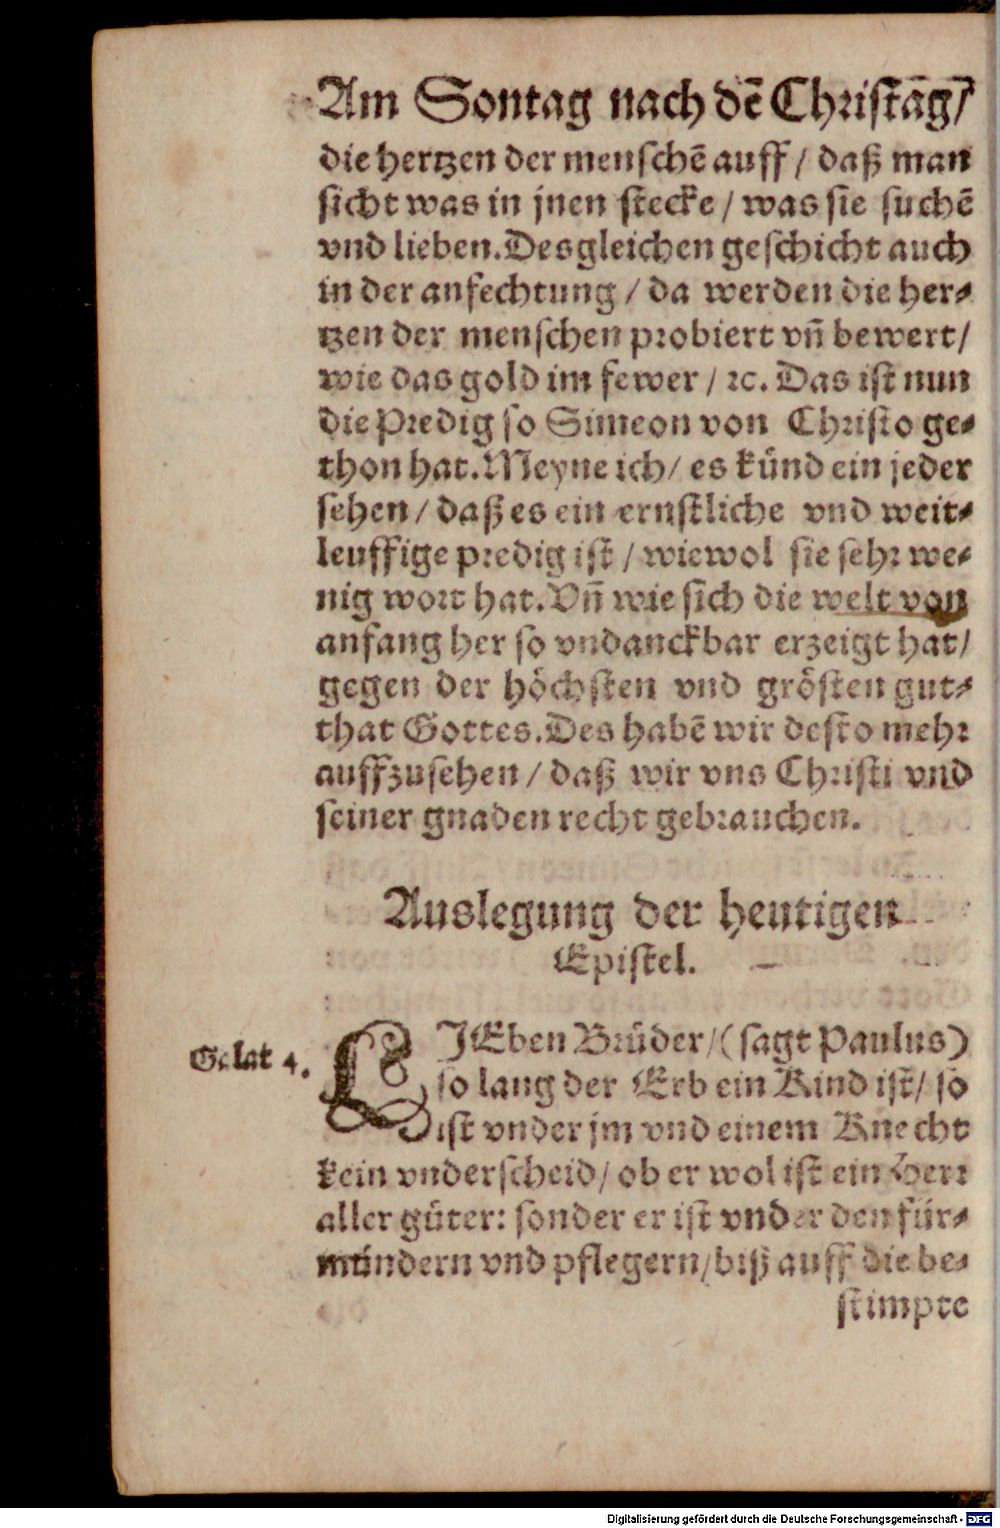 Am Sontag nach dē Christag/
die hertzen der menschē auff / daß man
sicht was in jnen stecke / was sie suchē
vnd lieben. Desgleichen geschicht auch
in der anfechtung / da werden die her⸗
tzen der menschen probiert vñ bewert/
wie das gold im fewer / ꝛc. Das ist nun
die Predig so Simeon von Christo ge⸗
thon hat. Meyne ich / es künd ein jeder
sehen / daß es ein ernstliche vnd weit⸗
leuffige predig ist / wiewol sie sehr we⸗
nig wort hat. Vñ wie sich die welt von
anfang her so vndanckbar erzeigt hat/
gegen der höchsten vnd grösten gut⸗
that Gottes. Des habē wir desto mehr
auffzusehen / daß wir vns Christi vnd
seiner gnaden recht gebrauchen.
Auslegung der heutigen
Epistel.
Galat 4.
LJEben Brüder / (sagt Paulus)
so lang der Erb ein Kind ist / so
ist vnder jm vnd einem Knecht
kein vnderscheid / ob er wol ist ein Herr
aller güter: sonder er ist vnder den für⸗
mündern vnd pflegern / biß auff die be⸗
stimpte
Digitalisierung gefördert durch die Deutsche Forschungsgemeinschaft - DFG